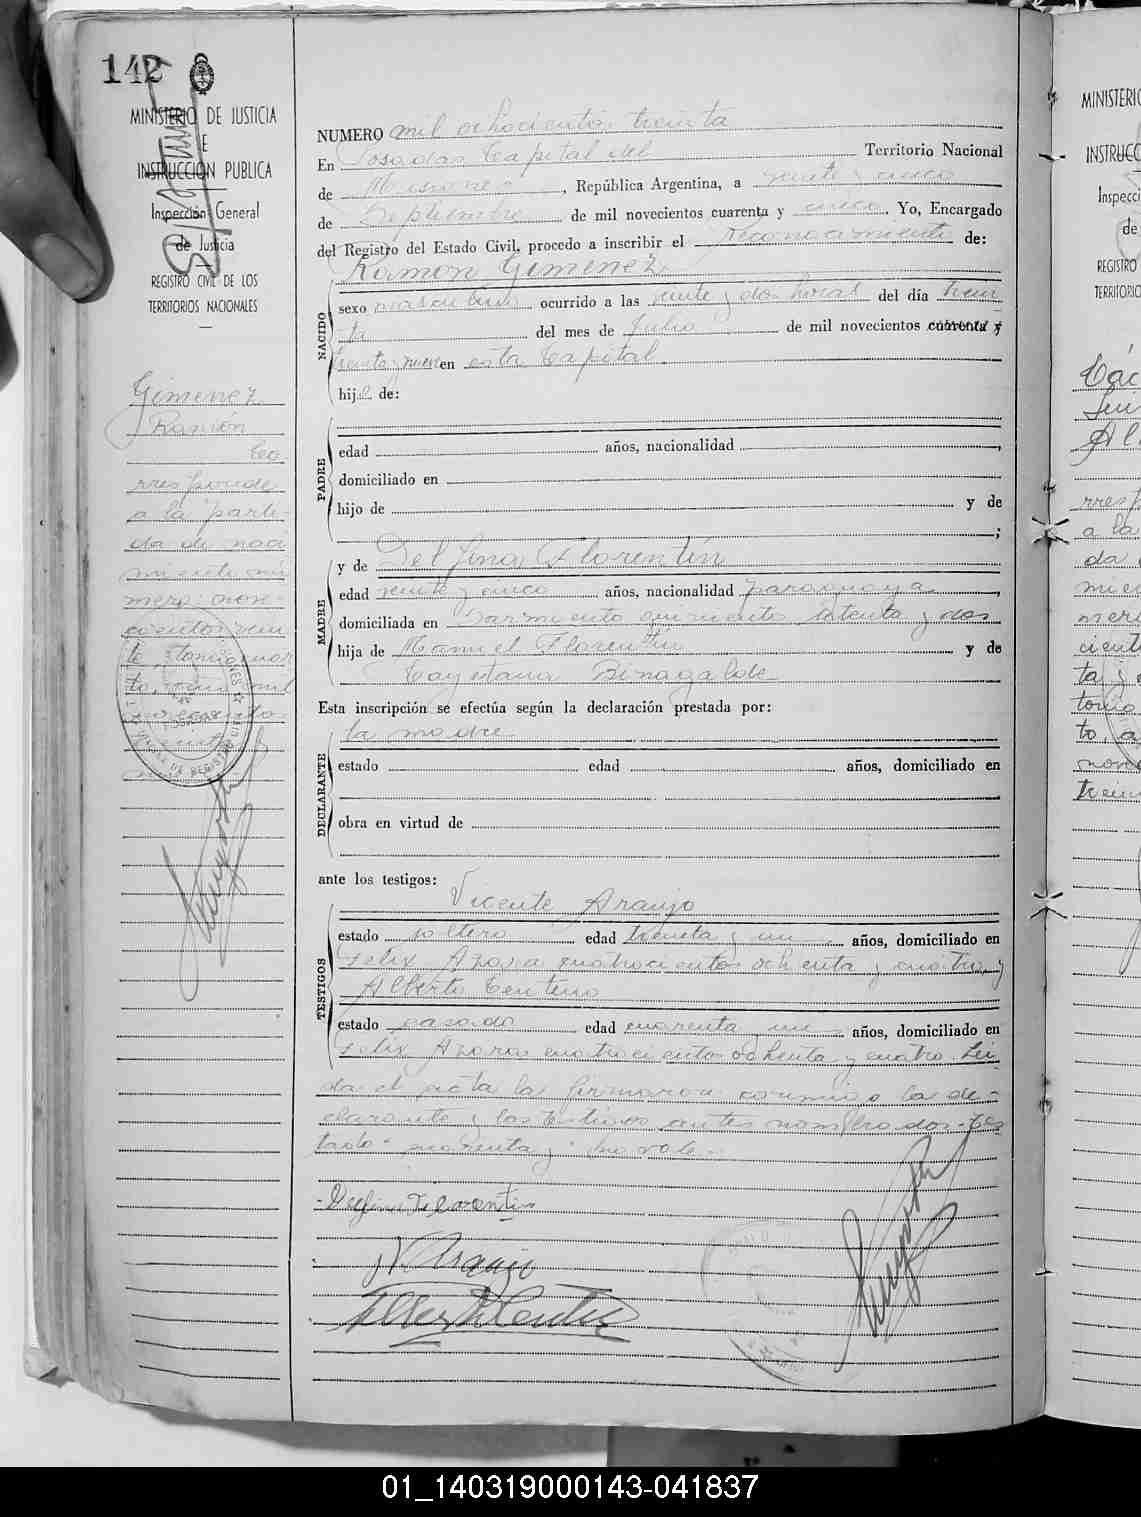 142
MINISTERIO DE JUSTICIA
E
INSTRUCCIÓN PUBLICA
Inspección General
de Justicia
REGISTRO CIVIL DE LOS
TERRITORIOS NACIONALES
Gimenez
Ramón
Co
rresponde
a la parti-
da de naci
miento nú
mero nove-
cientos vein
te, tomo cuar
to,
NUMERO mil ochocientos treinta
En Posadas Capital del Territorio Nacional
de Misiones, República Argentina, a veinte y cinco
de Septiembre de mil novecientos cuarenta y cinco. Yo, Encargado
del Registro del Estado Civil, procedo a inscribir el Reconocimiento de:
Ramon Gimenez
NACIDO
sexo masculino ocurrido a las veinte y dos horas del día trein
ta del mes de Julio de mil novecientos cuarenta y
treinta y nueve en esta Capital
hijo de:
PADRE
edad años, nacionalidad ,
domiciliado en
hijo de y de
;
MADRE
y de Delfina Florentín
edad veinte y cinco años, nacionalidad paraguaya,
domiciliada en Sarmiento quinientos setenta y dos
hija de Manuel Florentín y de
Cayetana
Esta inscripción se efectúa según la declaración prestada por:
la madre
DECLARANTE
estado edad años, domiciliado en
obra en virtud de
ante los testigos:
Vicente Araujo
TESTIGOS
estado soltero edad treinta y un años, domiciliado en
Felix Azara cuatrocientos ochenta y cuatro y
Alberto Centeno
estado casado edad cuarenta y un años, domiciliado en
Felix Azara cuatrocientos ochenta y cuatro. Lei
da el acta la firmaron conmigo la de-
clarante y los testigos antes nombrados-Tes
tado: cuarenta y: no vale.-
Delfina Florentin
V. Araujo
MINISTERIO
INSTRUCC
Inspecci
de
REGISTRO
TERRITORIO
rresp
a la
da
mien
mero
cient
ta y
tomo
to, a
nove
trein
01_140319000143-041837